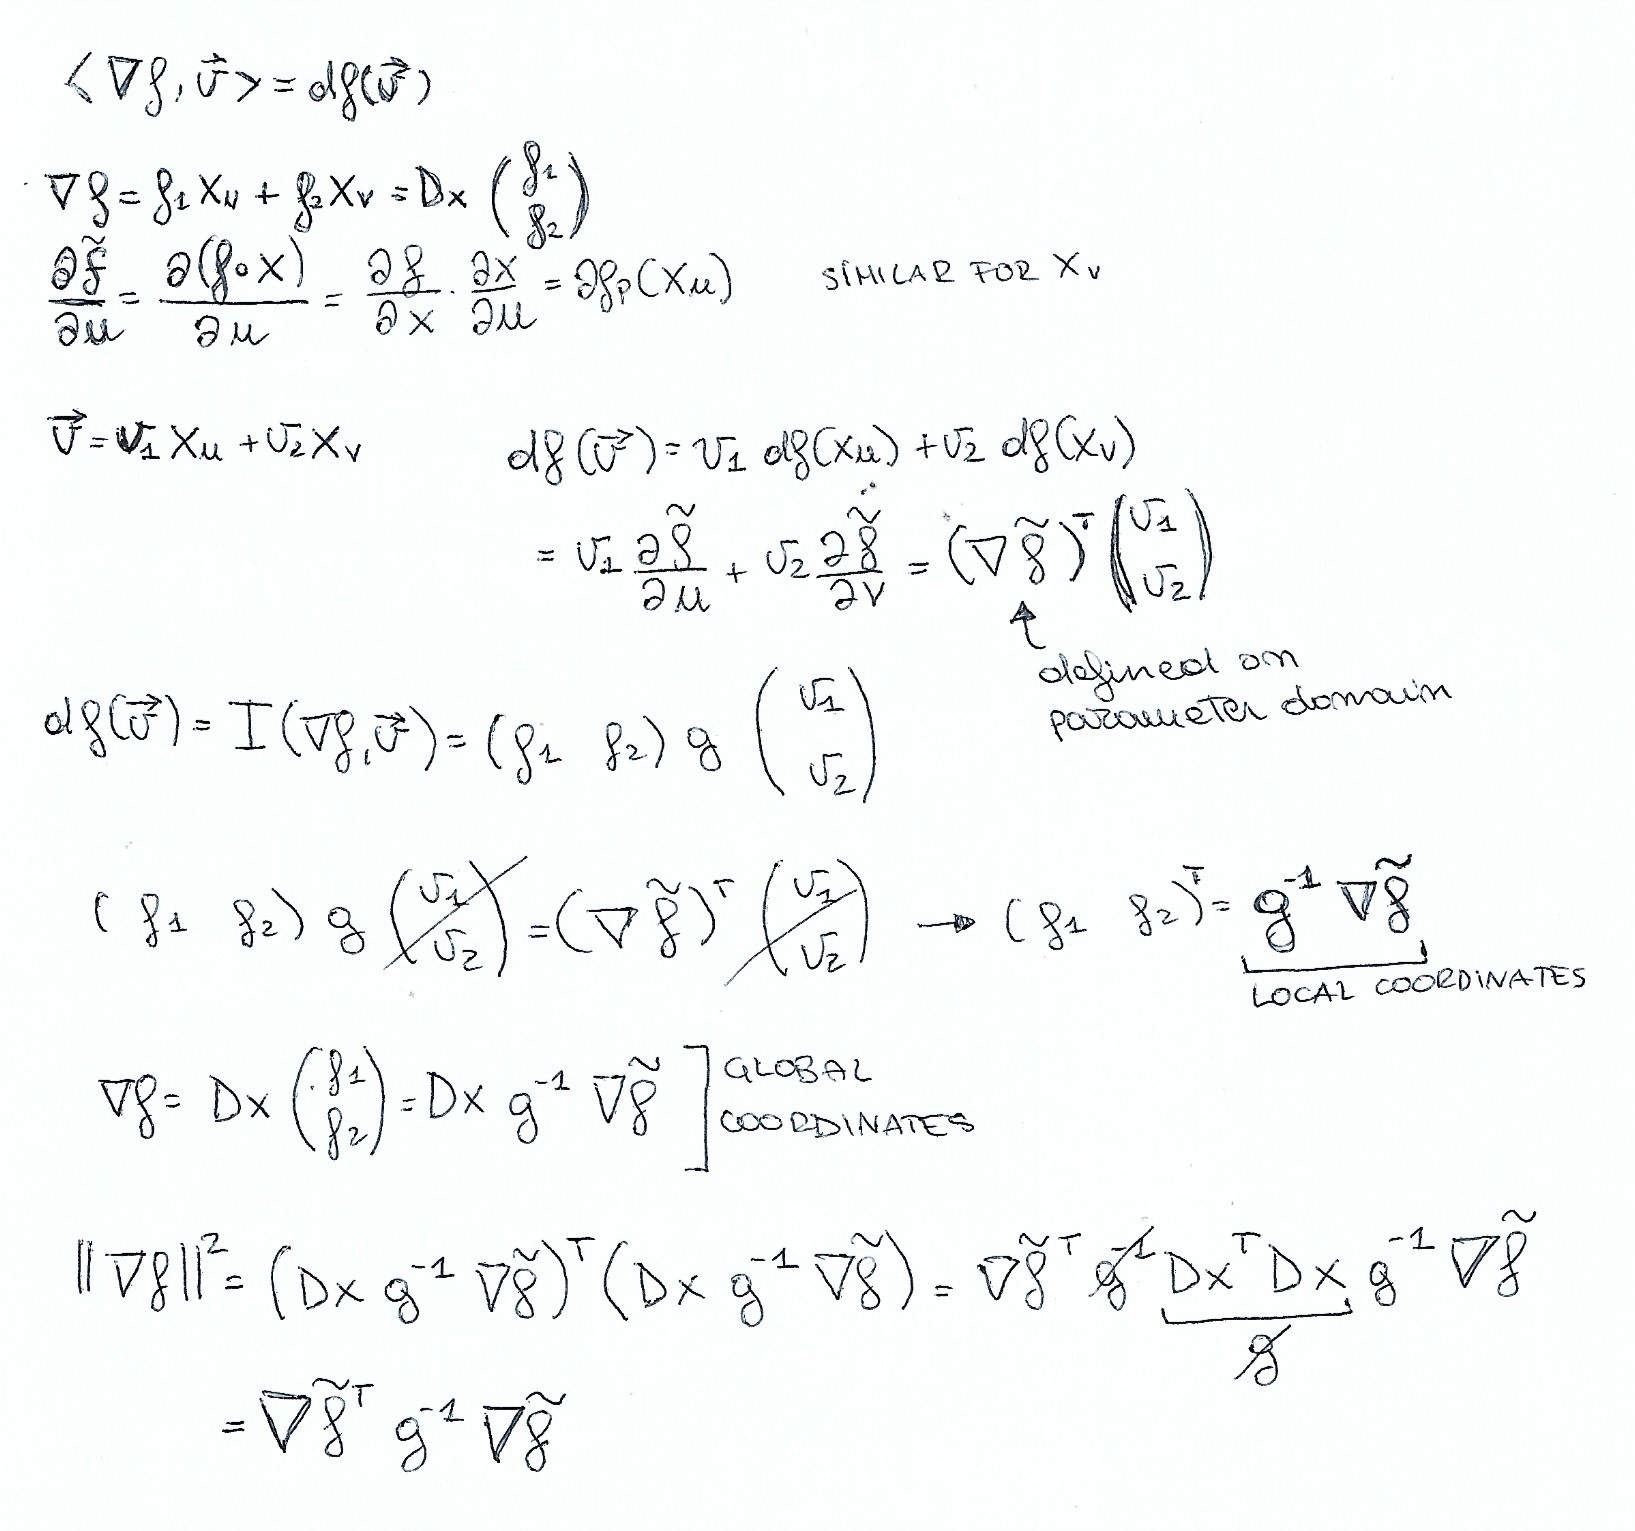 ⟨∇f, v⃗⟩ = df(v⃗)
∇f = f₁ Xᵤ + f₂ Xᵥ = Dx (f₁ f₂)
∂f̃/∂u = ∂(f∘x)/∂u = ∂f/∂x · ∂x/∂u = ∂fₚ(Xᵤ) SIMILAR FOR Xᵥ
v⃗ = v₁ Xᵤ + v₂ Xᵥ df(v⃗) = v₁ df(Xᵤ) + v₂ df(Xᵥ)
= v₁ ∂f̃/∂u + v₂ ∂f̃/∂v = (∇f̃)ᵀ (v₁ v₂)
↑
defined on
parameter domain
df(v⃗) = I(∇f, v⃗) = (f₁ f₂) g (v₁ v₂)
(f₁ f₂) g (v₁ v₂) = (∇f̃)ᵀ (v₁ v₂) → (f₁ f₂)ᵀ = g⁻¹ ∇f̃
LOCAL COORDINATES
∇f = Dx (f₁ f₂) = Dx g⁻¹ ∇f̃ ] GLOBAL
COORDINATES
‖∇f‖² = (Dx g⁻¹ ∇f̃)ᵀ (Dx g⁻¹ ∇f̃) = ∇f̃ᵀ g⁻¹ Dxᵀ Dx g⁻¹ ∇f̃
g
= ∇f̃ᵀ g⁻¹ ∇f̃